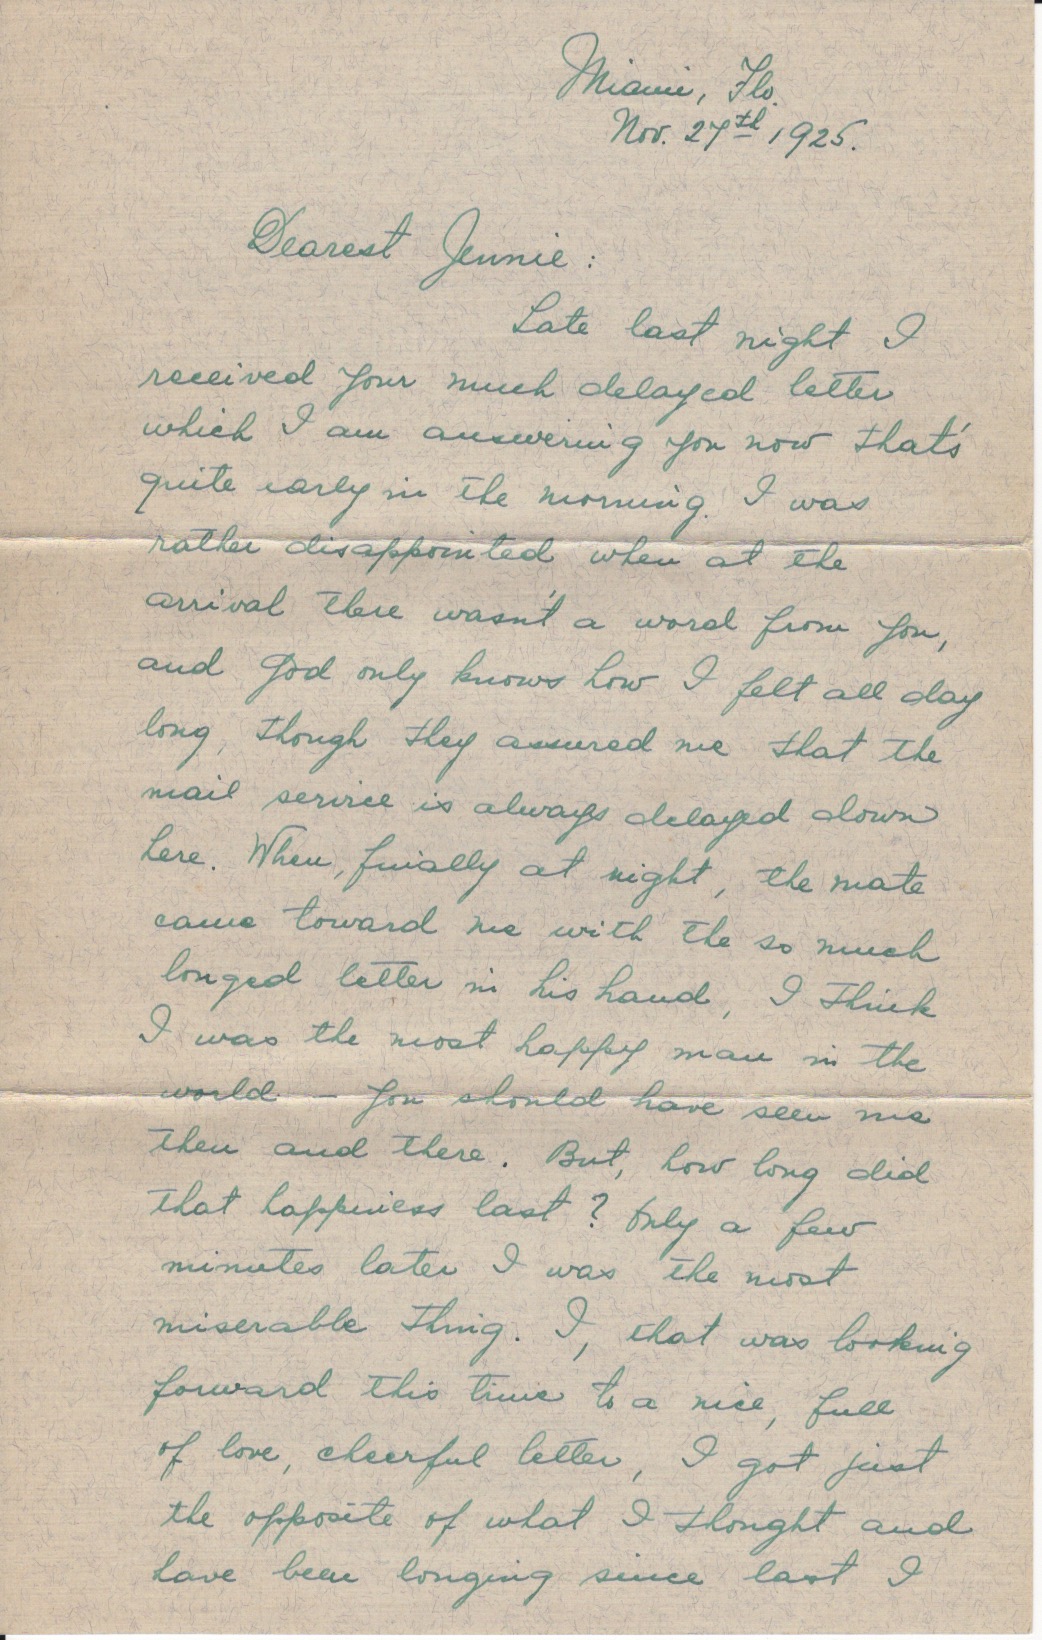 Miami, Flo.
Nov. 27th, 1925.
Dearest Jennie:
Late last night I
received your much delayed letter
which I am answering you now that's
quite early in the morning. I was
rather disappointed when at the
arrival there wasn't a word from you,
and God only knows how I felt all day
long, though they assured me that the
mail service is always delayed down
here. When, finally at night, the mate
came toward me with the so much
longed letter in his hand, I think
I was the most happy man in the
world - you should have seen me
then and there. But, how long did
that happiness last? Only a few
minutes later I was the most
miserable thing. I, that was looking
forward this time to a nice, full
of love, cheerful letter, I got just
the opposite of what I thought and
have been longing since last I